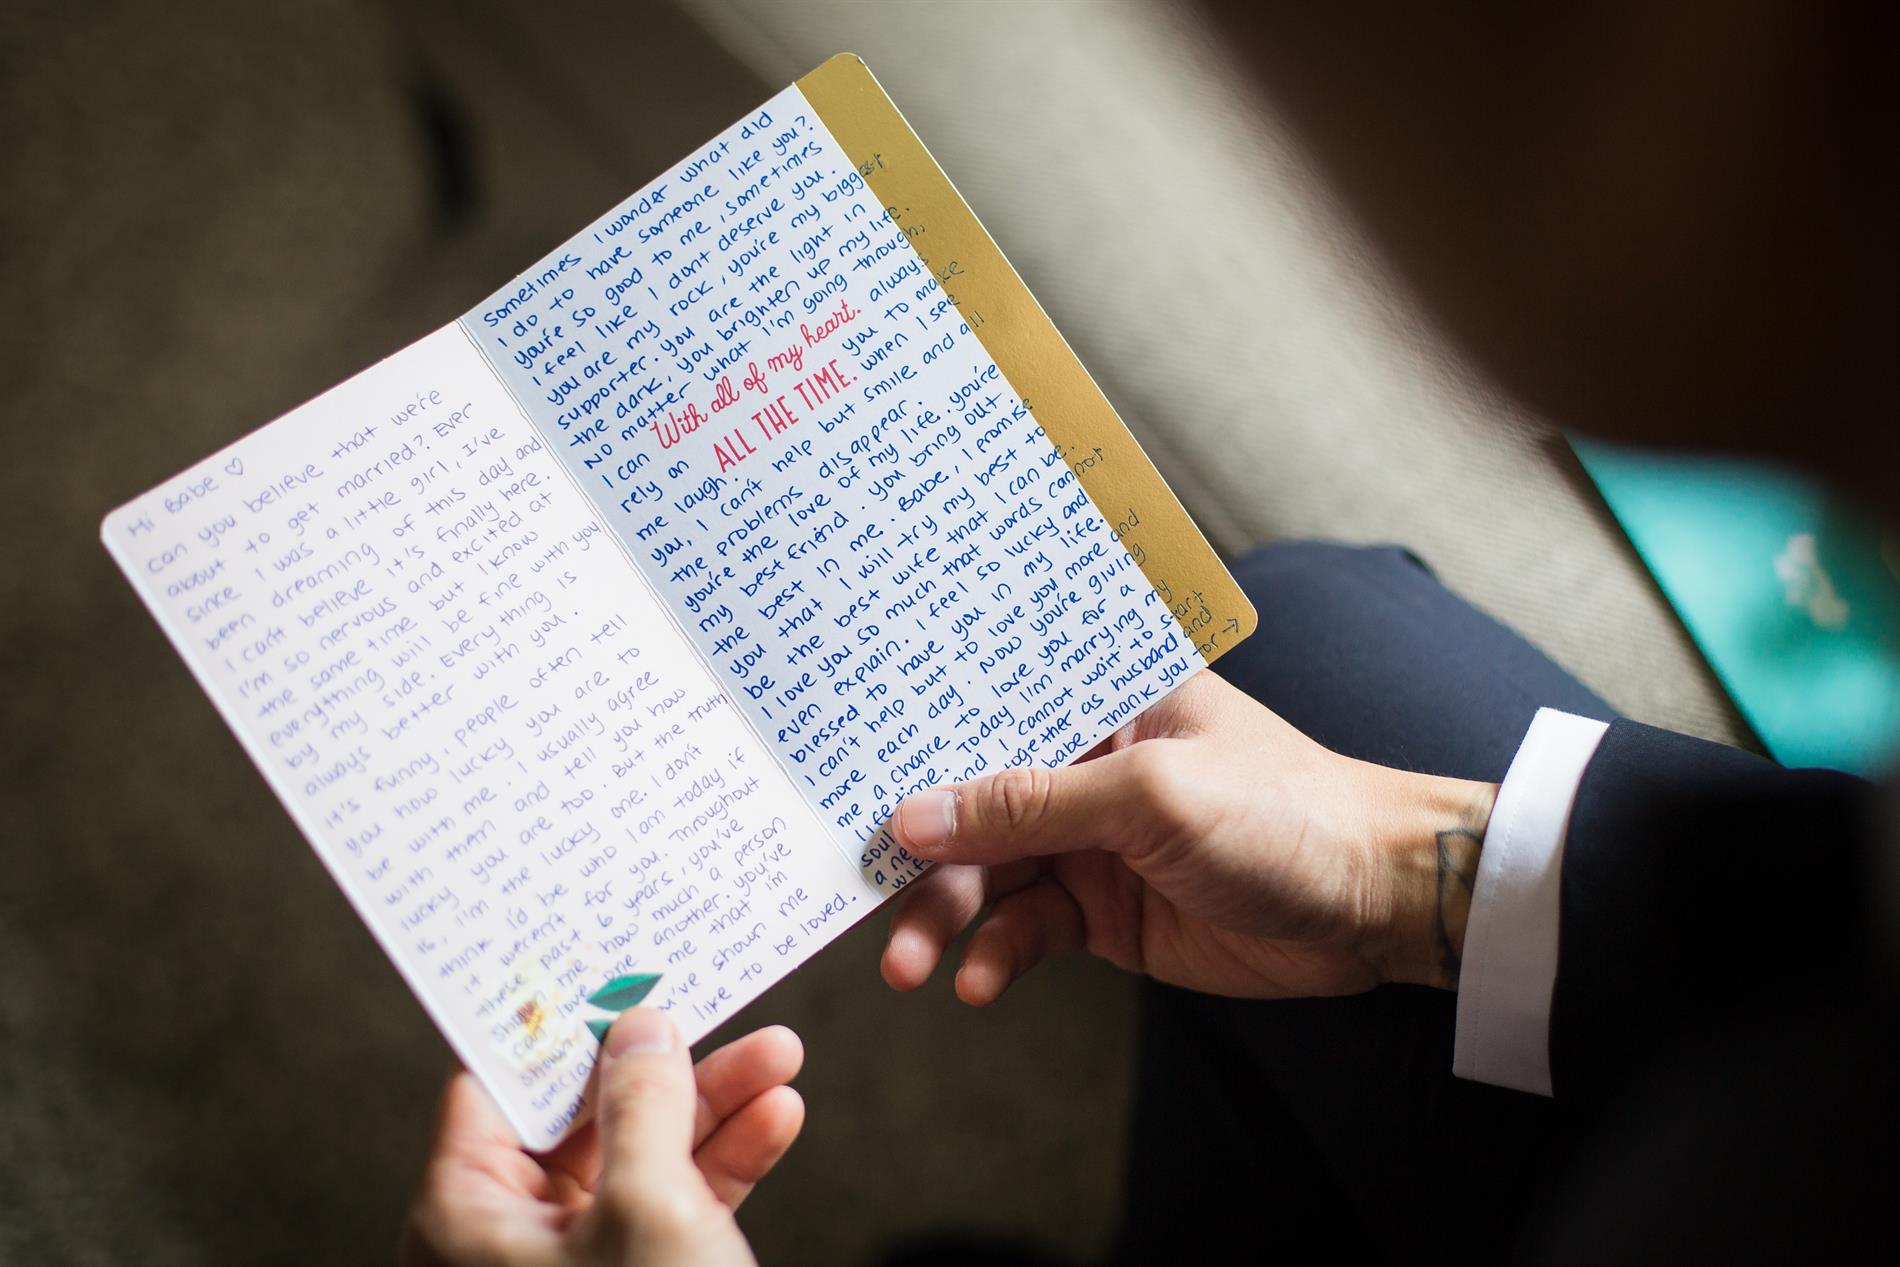 Hi Babe ♡
can you believe that we're
about to get married? Ever
since I was a little girl, I've
been dreaming of this day and
I can't believe it's finally here.
I'm so nervous and excited at
the same time but I know
everything will be fine with you
by my side. Everything is
always better with you.
It's funny, people often tell
you how lucky you are to
be with me. I usually agree
with them and tell you how
lucky you are too. But the truth
is, I'm the lucky one. I don't
think I'd be who I am today if
it weren't for you. Throughout
these past 6 years, you've
shown me how much a person
can love one another. you've
shown me that I'm
special you've shown me
what like to be loved.
sometimes I wonder what did
I do to have someone like you?
you're so good to me, sometimes
I feel like I dont deserve you.
you are my rock, you're my biggest
supporter. you are the light in
the dark, you brighten up my life.
No matter what I'm going through,
I can With all of my heart. always
rely on ALL THE TIME. you to make
me laugh. when I see
you, I can't help but smile and all
the problems disappear.
you're the love of my life. you're
my best friend. you bring out
the best in me. Babe, I promise
you that I will try my best to
be the best wife that I can be.
I love you so much that words cannot
even explain. I feel so lucky and
blessed to have you in my life.
I can't help but to love you more and
more each day. Now you're giving
me a chance to love you for a
lifetime. Today I'm marrying my
soul and I cannot wait to start
a ne together as husband and
wife babe. Thank you for →